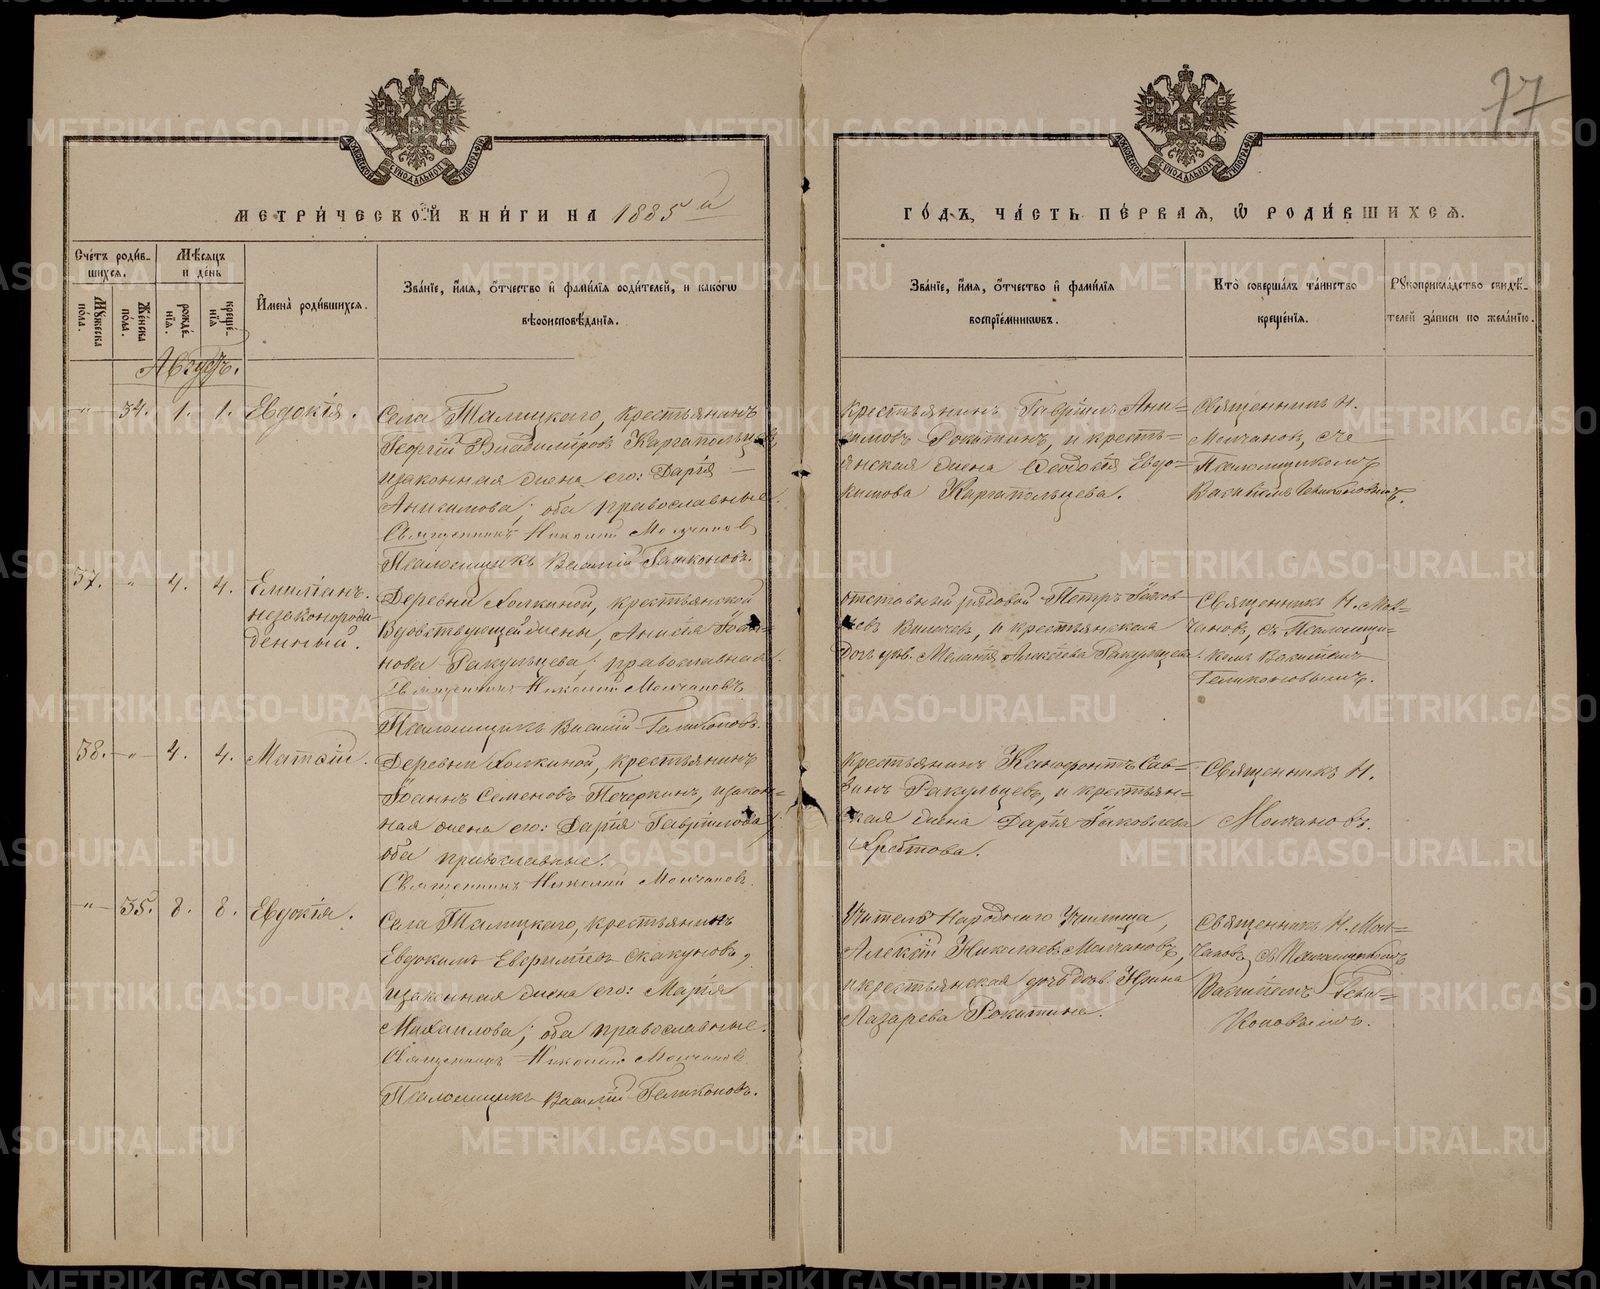 77
МЕТРИ́ЧЕСКОЙ КНИ́ГИ НА 1885й
ГО́ДЪ, ЧА́СТЬ ПЕ́РВАЯ, Ѡ РОДИ́ВШИХСЯ.
Сче́тъ роди́в-
шихся.
Мꙋжеска
по́ла.
Же́нска
по́ла.
Мѣ́сяцъ
и де́нь
рожде́-
нія.
креще́-
нія
И҆мена̀ роди́вшихся.
Зва́ніе, и҆́мя, ѻ҆́тчество и҆ фами́лія роди́телей, и како́гѡ
вѣроисповѣ́данія.
Зва́ніе, и҆́мя, ѻ҆́тчество и҆ фами́лія
воспріе́мникѡвъ.
Кто̀ соверша́лъ та́инство
креще́нія.
Рꙋкоприкла́дство свидѣ́-
телей за́писи по жела́нію.
Августъ.
-"- 34. 1. 1. Евдокія.
Села Талицкаго, крестьянинъ
Георгій Владиміровъ Каргапольцевъ
изаконная жена его: Дарія
Анисимова; оба православные.
Священникъ Николай Молчановъ
Псаломщикъ Василій Геликоновъ.
Крестьянинъ Гавріилъ Ани-
симовъ Рокитинъ, и кресть-
янская жена Ѳеодосія Евдо-
кимова Каргапольцева.
Священникъ Н.
Молчановъ, съ
Псаломщикомъ
Василіемъ Геликоновымъ.
37. " 4. 4. Емиліанъ.
незаконорож
денный.
Деревни Холкиной, крестьянской
Вдовствующей жены, Анисія Іоан-
нова Ракульцева; православная.
Священникъ Николай Молчановъ
Псаломщикъ Василій Геликоновъ.
отставный рядовой Петръ Іаков
левъ Вилачевъ, и крестьянская
дочъ дѣв. Меланія Алексіева Ракульцева.
Священникъ Н. Мол-
чановъ, съ Псаломщи-
комъ Василіемъ
Геликоновымъ.
38. -"- 4. 4. Матѳій.
Деревни Холкиной, крестьянинъ
Іоаннъ Семеновъ Печеркинъ, изакон-
ная жена его: Дарія Гавріилова;
оба православные.
Священникъ Николай Молчановъ.
Крестьянинъ Ксенофонтъ Сав-
винъ Ракульцевъ, и крестьян-
ская жена Дарія Іаковлева
Хребтова.
Священникъ Н.
Молчановъ.
-"- 35. 8. 8. Евдокія.
Села Талицкаго, крестьянинъ
Евдокимъ Скакуновъ,
изаконная жена его: Марія
Михаилова; оба православные.
Священникъ Николай Молчановъ
Псаломщикъ Василій Геликоновъ.
Учитель Народнаго Училища,
Алексій Николаевъ Молчановъ,
и крестьянская дочь дѣв. Ирина
Лазарева Рокитина.
Священникъ Н. Мол-
чановъ, съ Псаломщикомъ
Василіемъ Гели-
коновымъ.
METRIKI.GASO-URAL.RU